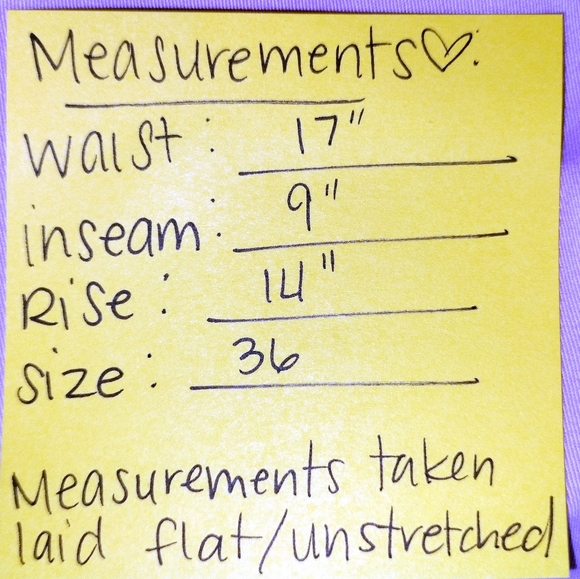 Measurements♡:
waist: 17"
inseam: 9"
Rise: 14"
size: 36
Measurements taken
laid flat/unstretched